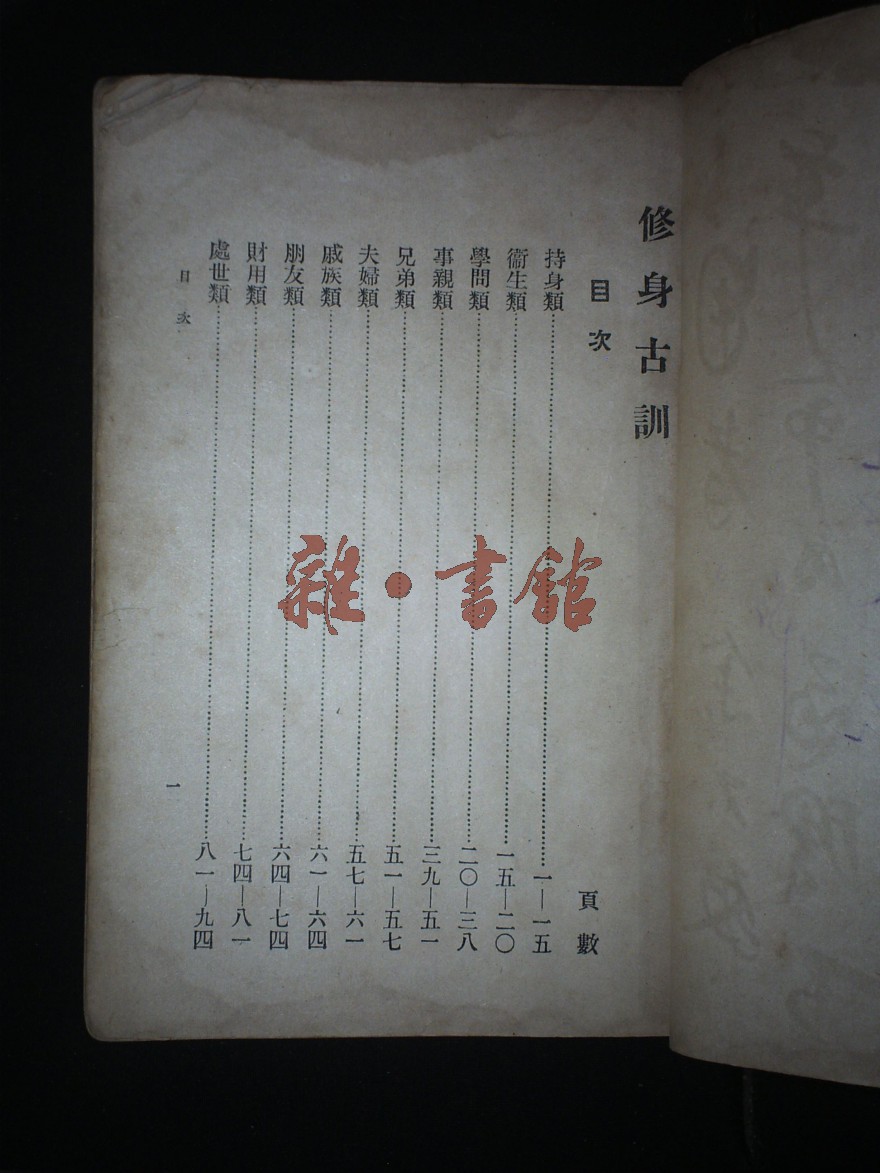 修身古訓
目次
頁數
持身類 一—一五
衞生類 一五—二〇
學問類 二〇—三八
事親類 三九—五一
兄弟類 五一—五七
夫婦類 五七—六一
戚族類 六一—六四
朋友類 六四—七四
財用類 七四—八一
處世類 八一—九四
目次
一
雜·書館